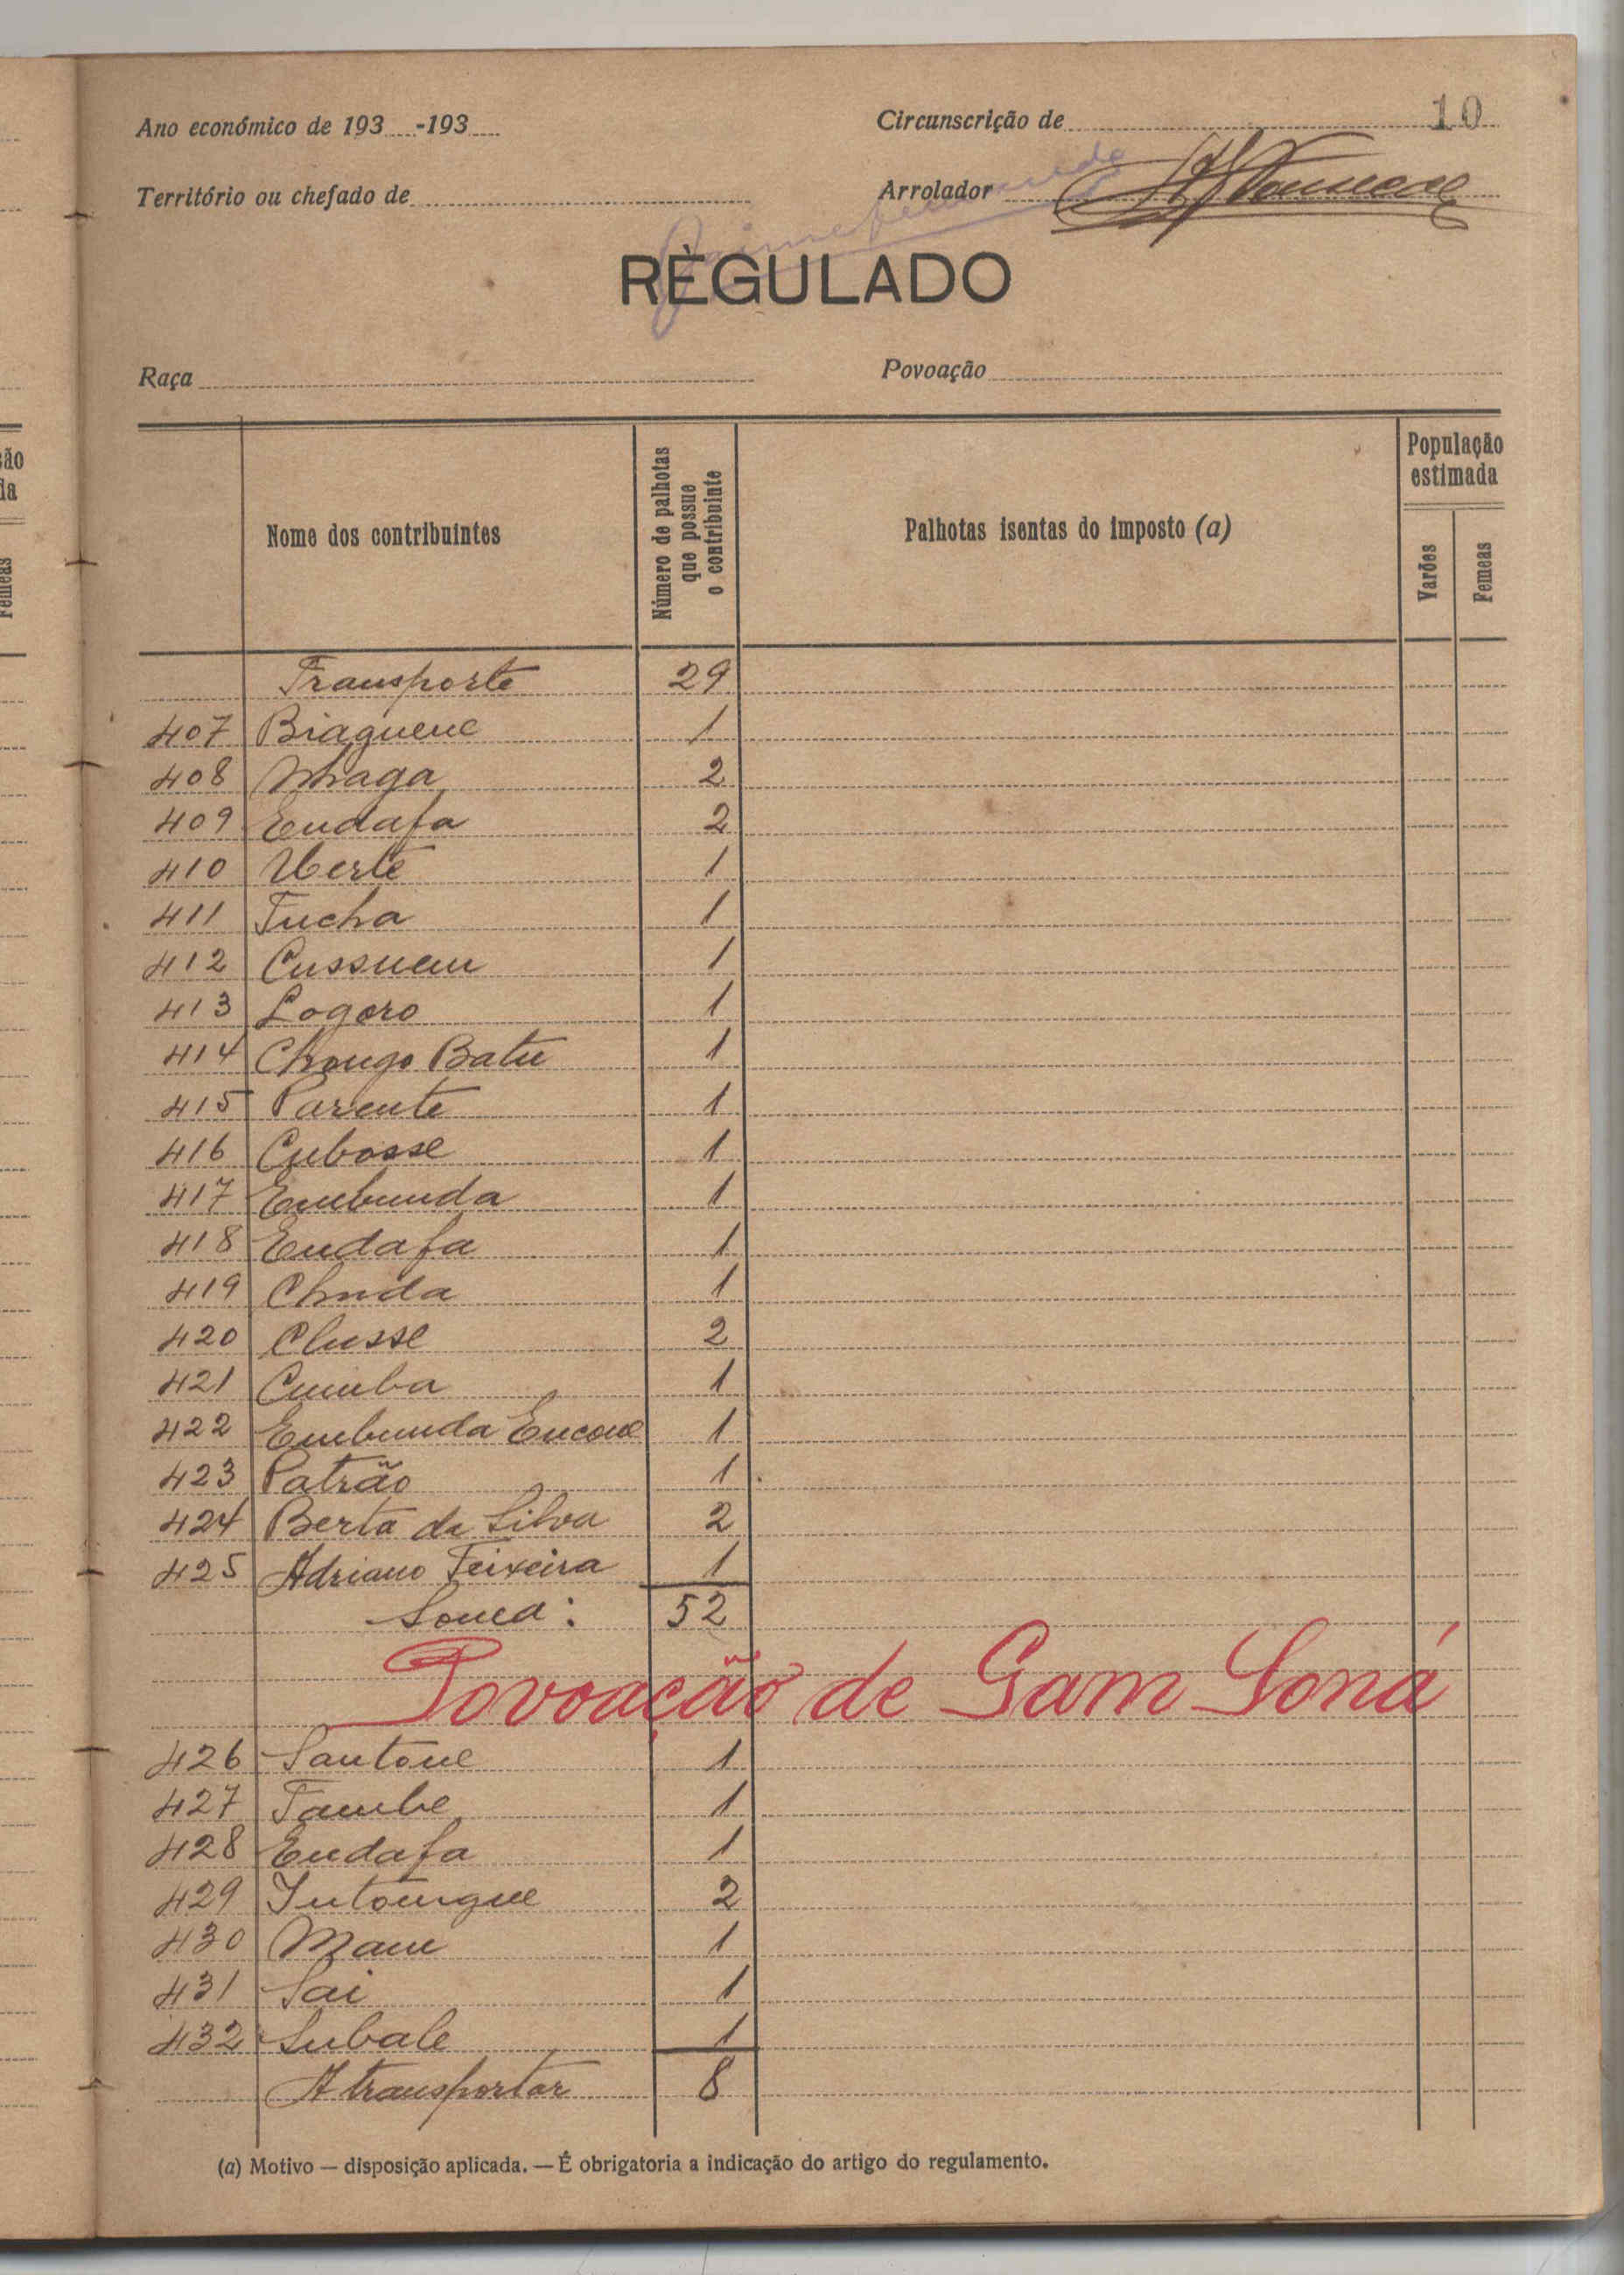 Ano económico de 193 -193
Circunscrição de 10
Território ou chefado de
Arrolador
RÈGULADO
Raça
Povoação
Nome dos contribuintes
Número de palhotas que possue o contribuinte
Palhotas isentas do imposto (a)
População estimada
Varões
Femeas
Transporte 29
407 Biaguene 1
408 Nhaga 2
409 Endafa 2
410 Uerte 1
411 Tucha 1
412 1
413 Logoro 1
414 Chongo Batu 1
415 Parente 1
416 Cubosse 1
417 Embunda 1
418 Endafa 1
419 Chuda 1
420 Clusse 2
421 Cumba 1
422 Embunda Encone 1
423 Patrão 1
424 Berta da Silva 2
425 Adriano Teixeira 1
Soma: 52
Povoação de Gam Soná
426 Santone 1
427 Tambe 1
428 Endafa 1
429 Intongue 2
430 1
431 Sai 1
432 Subale 1
A transportar 8
(a) Motivo — disposição aplicada. — É obrigatoria a indicação do artigo do regulamento.